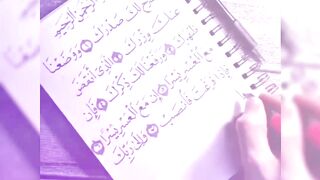 الرحمن الرحيم
نشرح لك صدرك ۝ ووضعنا
عنك وزرك ۝ الذي أنقض
ظهرك ۝ ورفعنا لك ذكرك ۝ فإن
مع العسر يسرا ۝ إن مع العسر يسرا ۝
فإذا فرغت فانصب ۝
وإلى ربك